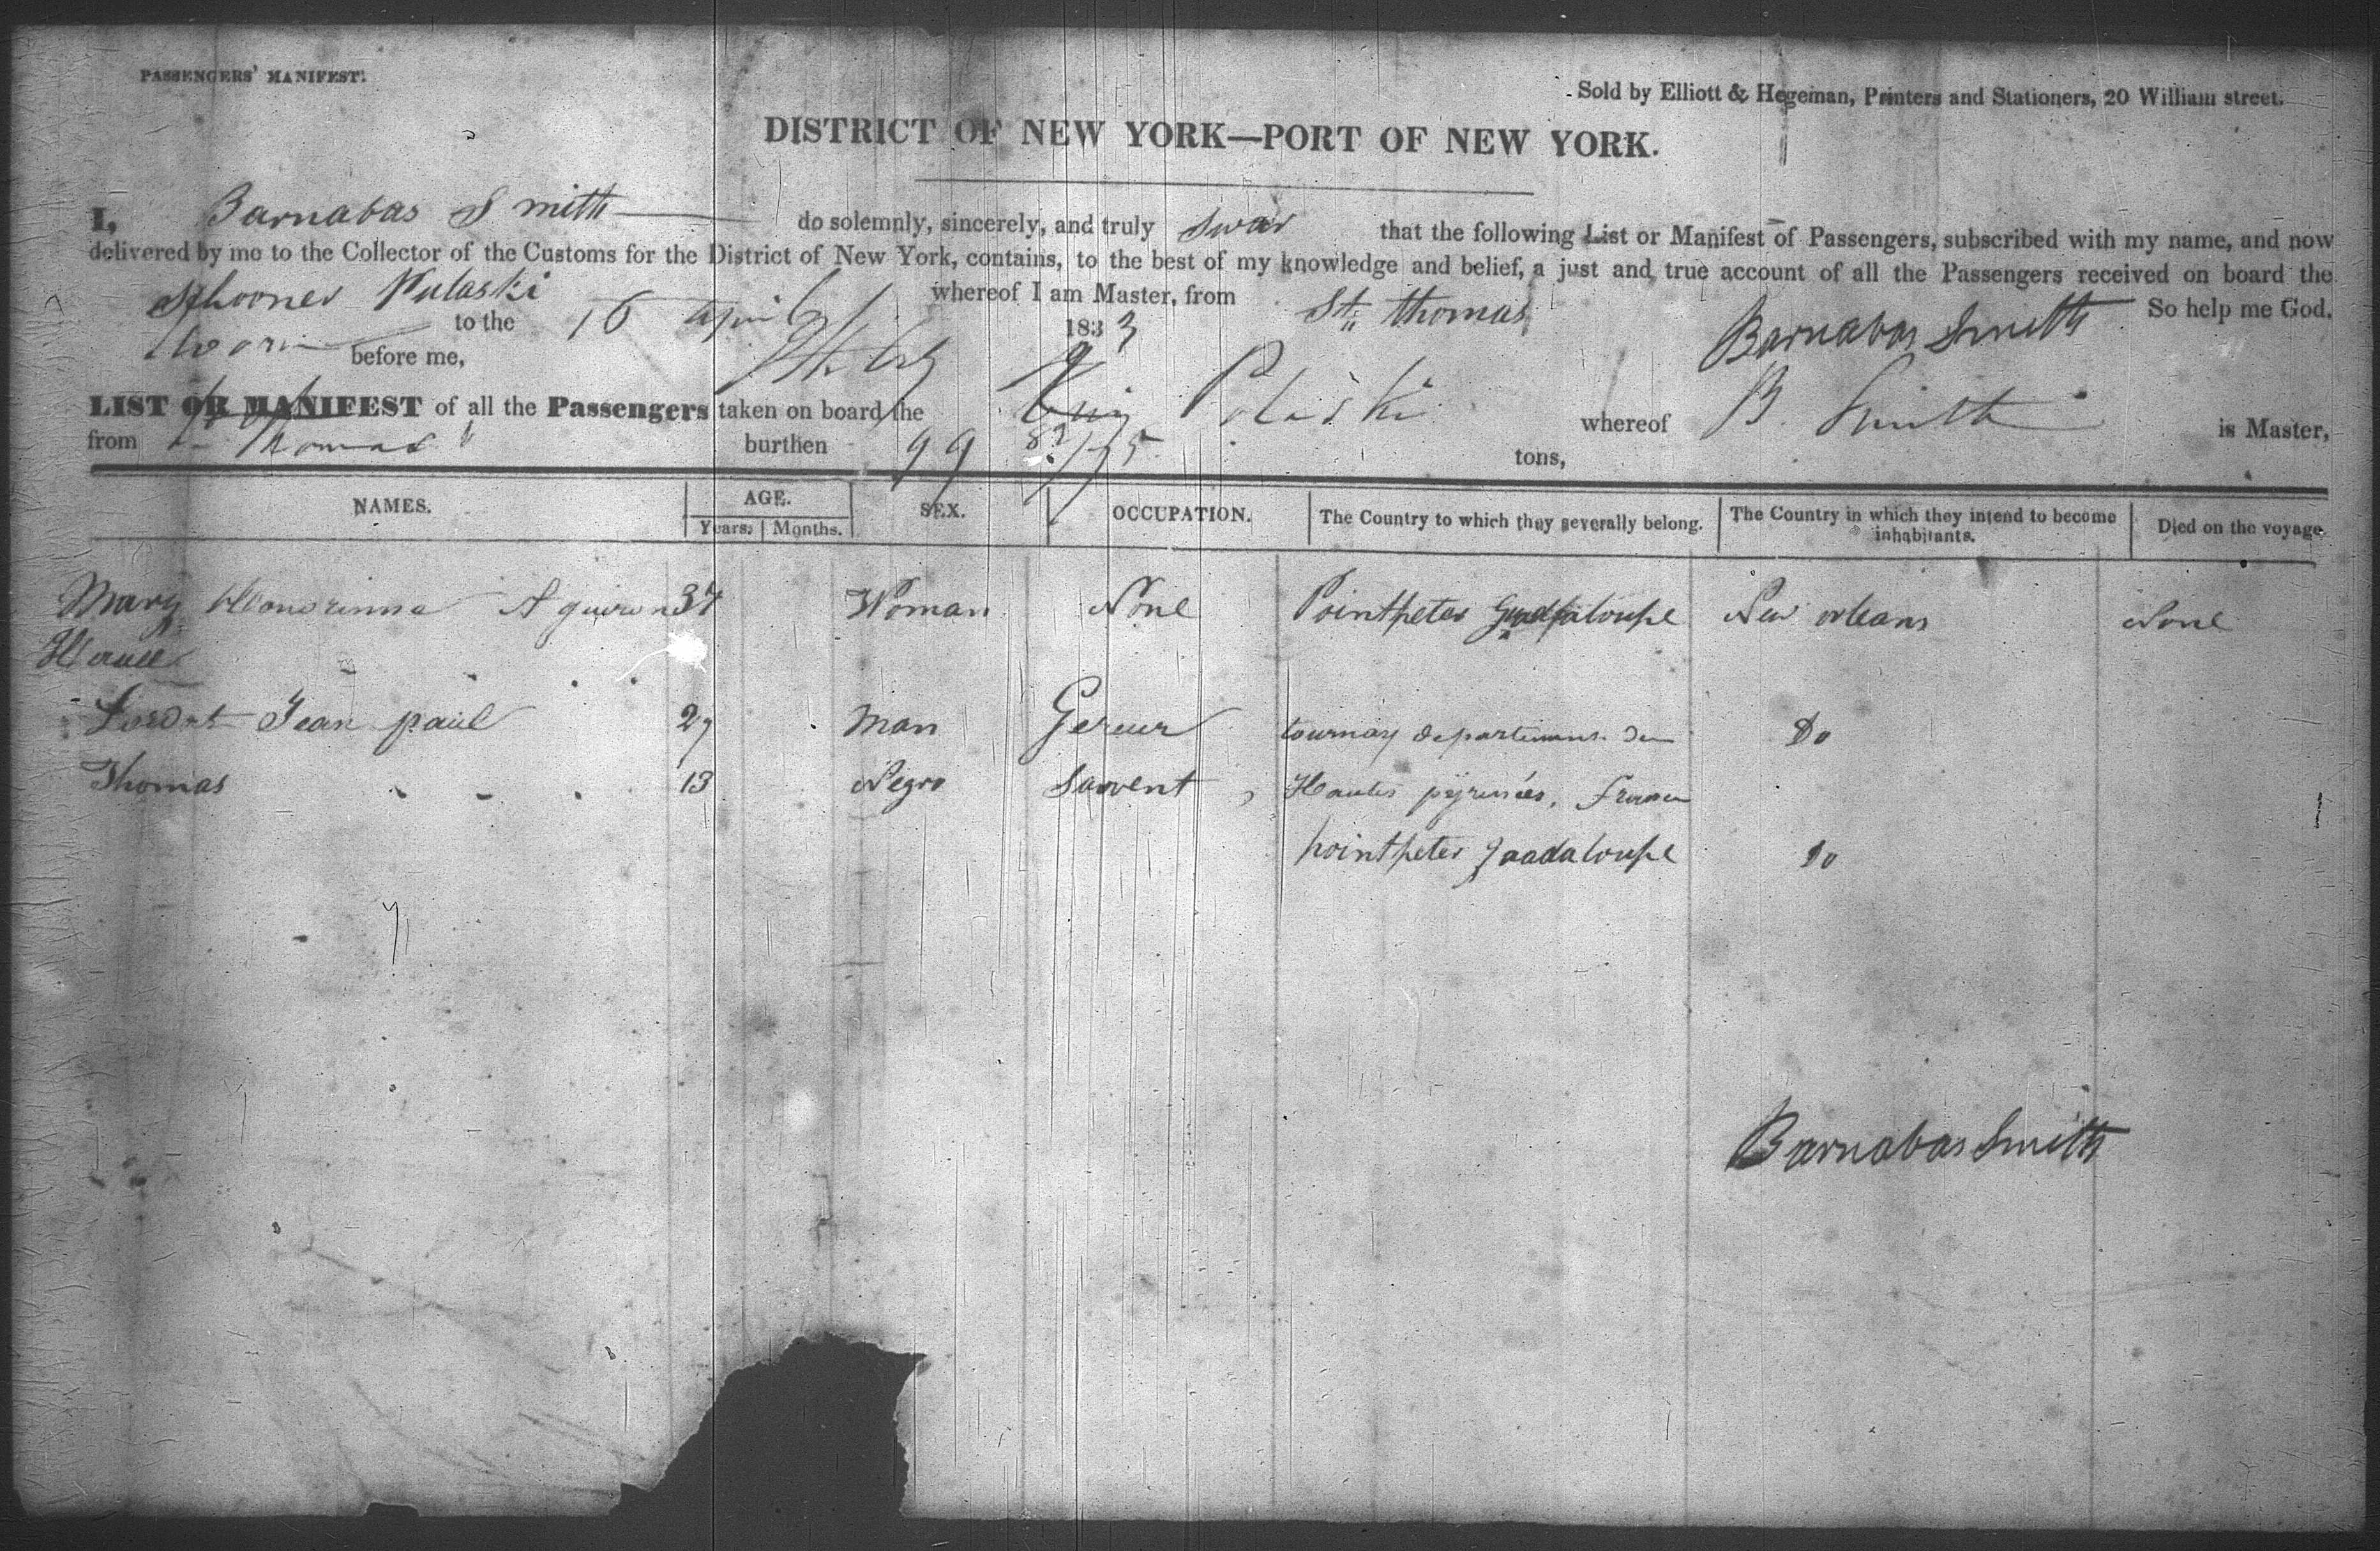 PASSENGERS' MANIFEST.
Sold by Elliott & Hegeman, Printers and Stationers, 20 William street.
DISTRICT OF NEW YORK—PORT OF NEW YORK.
I, Barnabas Smith do solemnly, sincerely, and truly swar that the following List or Manifest of Passengers, subscribed with my name, and now
delivered by me to the Collector of the Customs for the District of New York, contains, to the best of my knowledge and belief, a just and true account of all the Passengers received on board the
Schooner Pulaski whereof I am Master, from St. thomas So help me God.
to the 16 april 1833 Barnabas Smith
before me,
LIST OR MANIFEST of all the Passengers taken on board the Brig Polaski whereof B. Smith is Master,
from St Thomas burthen 99 tons,
NAMES. AGE. SEX. OCCUPATION. The Country to which they severally belong. The Country in which they intend to become inhabitants. Died on the voyage.
Years. Months.
Mary 37 Woman None Pointpeter Guadaloupe New orleans None
Jean paul 27 Man Gereur tournay departement Do
Thomas 13 Negro Sarvent Hautes pyrenées, France
pointpeter guadaloupe Do
Barnabas Smith